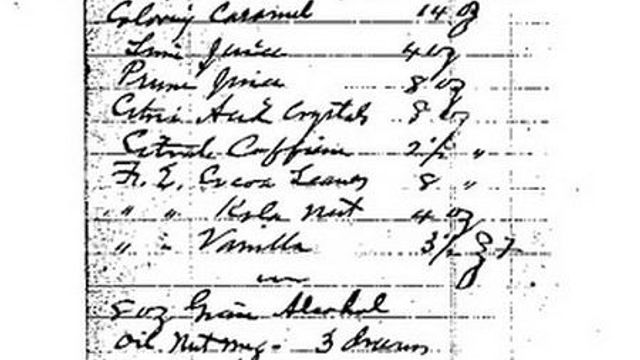 Coloring Caramel 14 oz
Lime Juice 4 oz
Prune Juice 8 oz
Citric Acid Crystals 8 oz
Citrate Caffiein 2½ "
Fl. E. Cocoa Leaves 8 "
" " Kola Nut 4 oz
" " Vanilla 3½ oz
8 oz Grain Alcohol
Oil Nutmeg - 3 drams